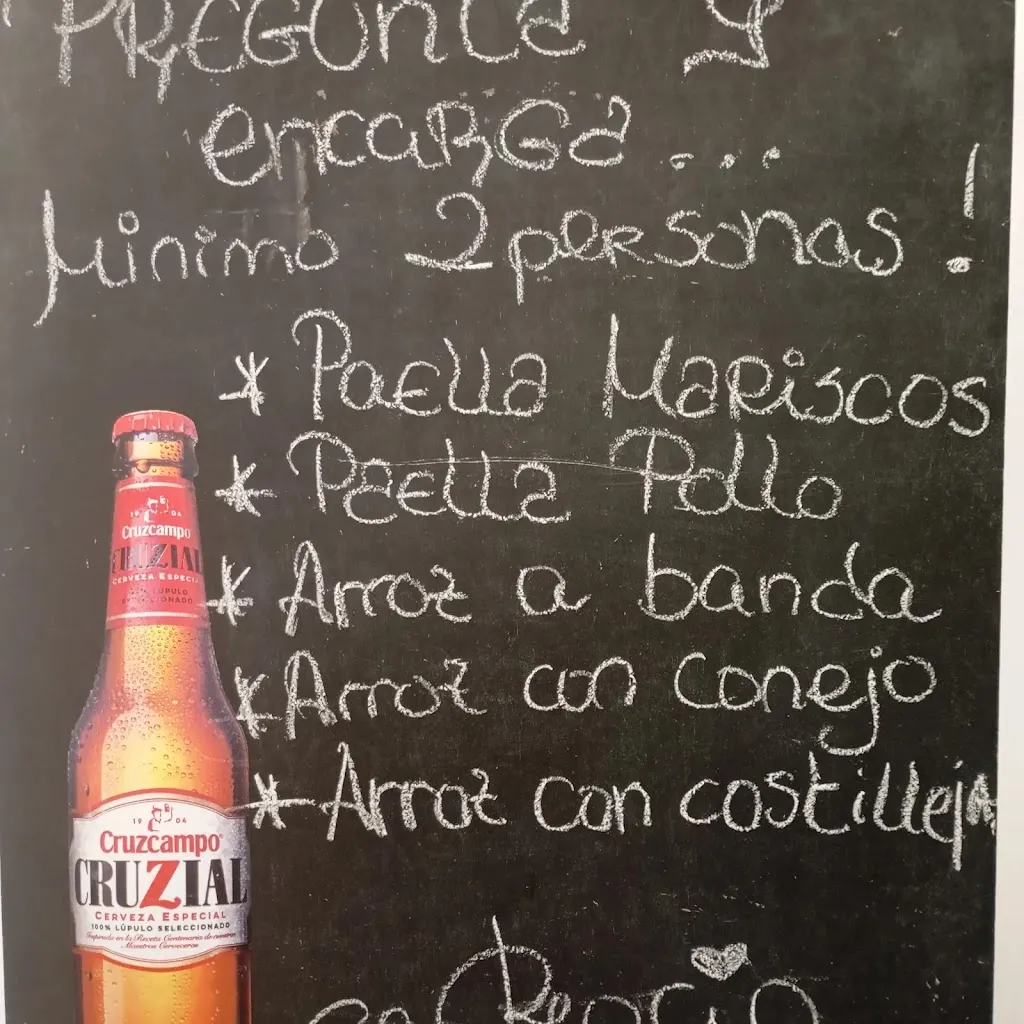 PREGUNTA Y
encarga...
Minimo 2 personas!
* Paella Mariscos
* Paella Pollo
* Arroz a banda
* Arroz con conejo
* Arroz con costilleja
1904
Cruzcampo
CRUZIAL
CERVEZA ESPECIAL
1904
Cruzcampo
CRUZIAL
CERVEZA ESPECIAL
100% LÚPULO SELECCIONADO
Inspirada en la Receta Centenaria de nuestros
Maestros Cerveceros